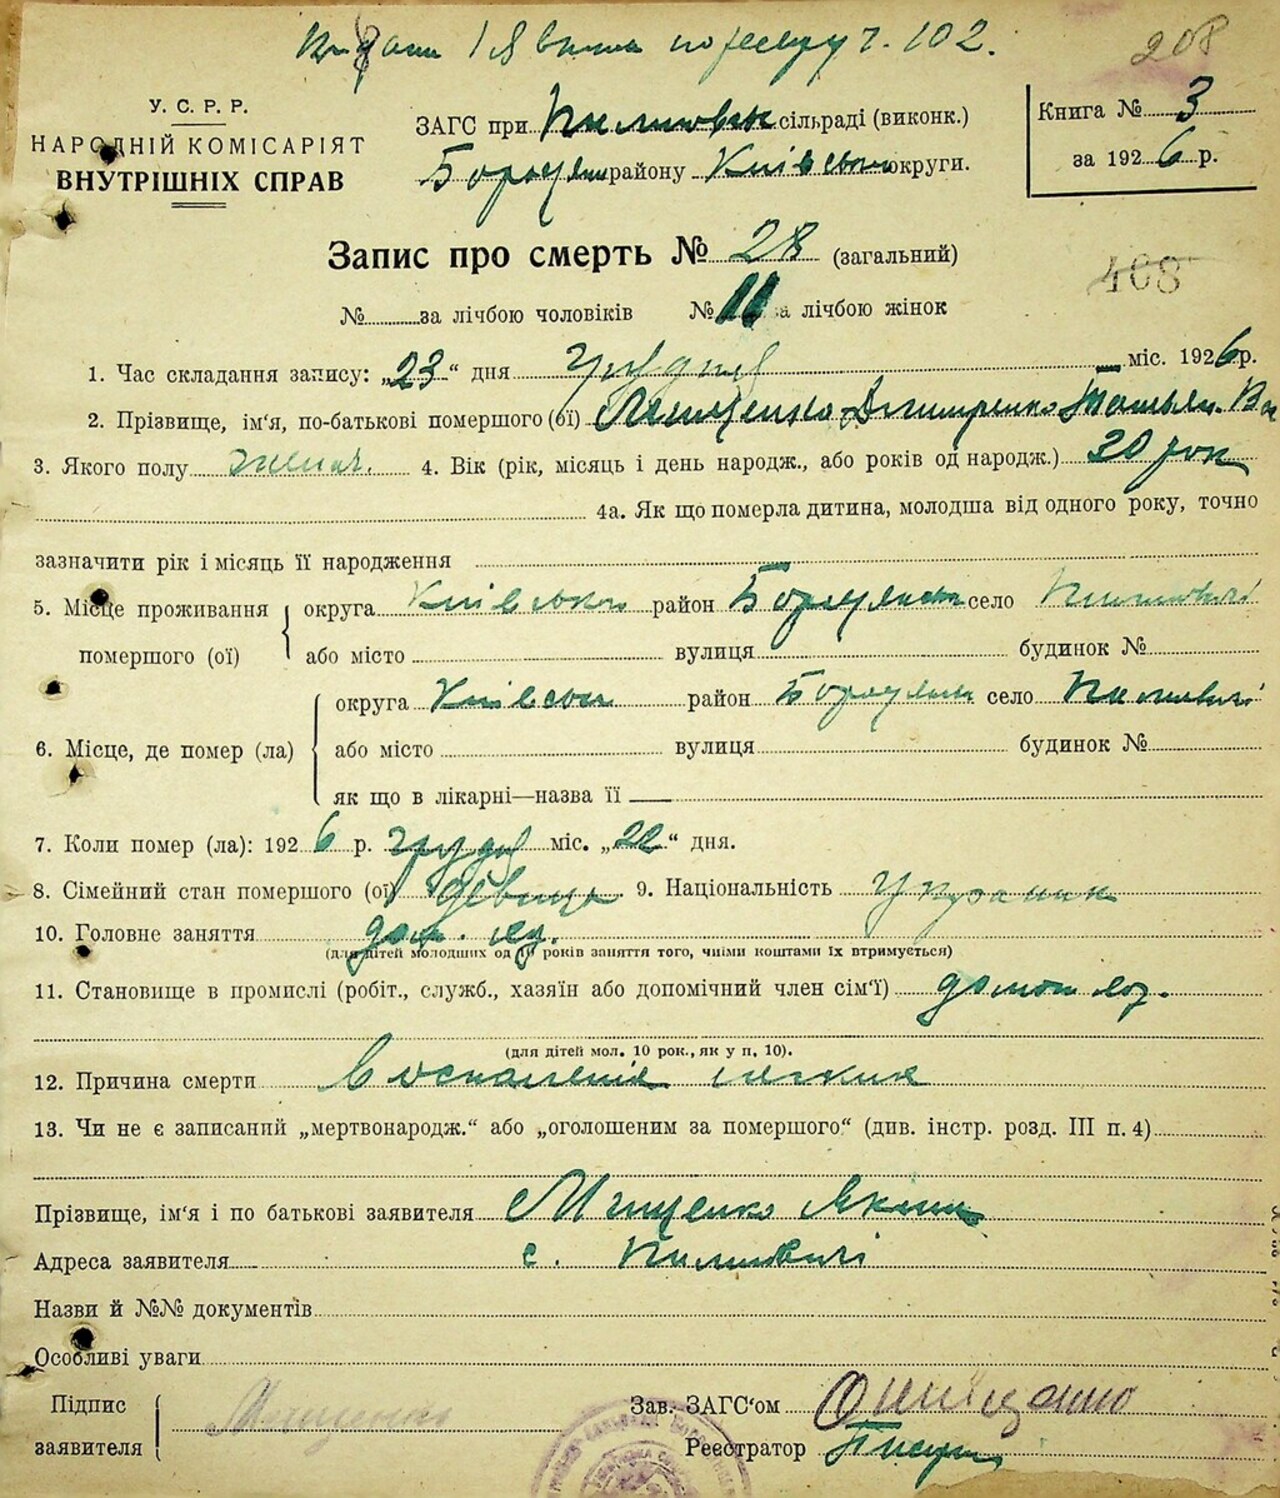 по реєстру ч. 102.
208
У. С. Р. Р.
НАРОДНІЙ КОМІСАРІЯТ
ВНУТРІШНІХ СПРАВ
ЗАГС при сільраді (виконк.)
району Київськ округи.
Книга № 3
за 1926 р.
Запис про смерть № 28 (загальний)
408
№ за лічбою чоловіків № 11 за лічбою жінок
1. Час складання запису: „23“ дня грудня міс. 1926 р.
2. Прізвище, ім'я, по-батькові помершого (ої) Дмитренко
3. Якого полу 4. Вік (рік, місяць і день народж., або років од народж.) 20 рок
4а. Як що померла дитина, молодша від одного року, точно
зазначити рік і місяць її народження
5. Місце проживання округа Київськ район село
помершого (ої) або місто вулиця будинок №
округа район село
6. Місце, де помер (ла) або місто вулиця будинок №
як що в лікарні—назва її
7. Коли помер (ла): 1926 р. груд міс. „22“ дня.
8. Сімейний стан помершого (ої) девица 9. Національність
10. Головне заняття
(для дітей молодших од 10 років заняття того, чиїми коштами їх втримується)
11. Становище в промислі (робіт., служб., хазяїн або допомічний член сім'ї)
(для дітей мол. 10 рок., як у п, 10).
12. Причина смерти Воспаленіе легких
13. Чи не є записаний „мертвонародж.“ або „оголошеним за помершого“ (див. інстр. розд. III п. 4)
Прізвище, ім'я і по батькові заявителя Мищенко Яким
Адреса заявителя с.
Назви й №№ документів
Особливі уваги
Підпис
заявителя Мищенко
Зав. ЗАГС'ом Оніщенко
Реєстратор